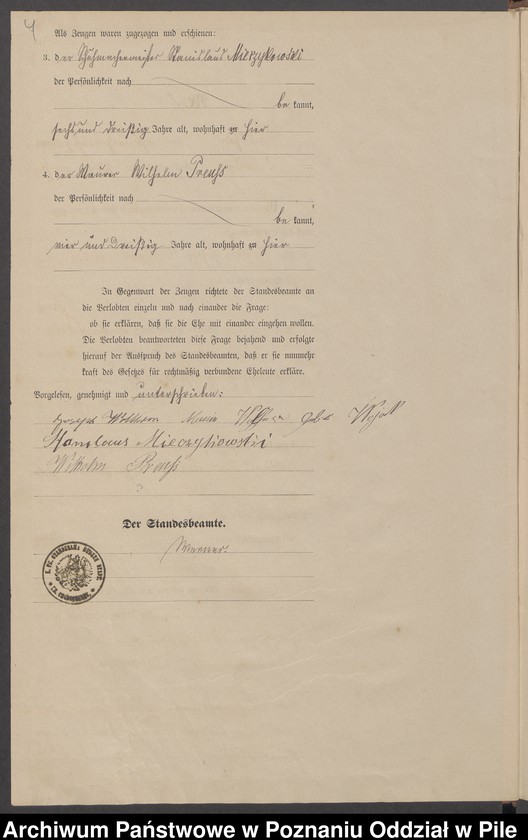 4
Als Zeugen waren zugezogen und erschienen:
3. der Schuhmachermeister Stanislaus Mierzykowski
der Persönlichkeit nach
be kannt,
sechs und dreißig Jahre alt, wohnhaft zu hier
4. der Maurer Wilhelm Preuß
der Persönlichkeit nach
be kannt,
vier und dreißig Jahre alt, wohnhaft zu hier
In Gegenwart der Zeugen richtete der Standesbeamte an
die Verlobten einzeln und nach einander die Frage:
ob sie erklären, daß sie die Ehe mit einander eingehen wollen.
Die Verlobten beantworteten diese Frage bejahend und erfolgte
hierauf der Ausspruch des Standesbeamten, daß er sie nunmehr
kraft des Gesetzes für rechtmäßig verbundene Eheleute erkläre.
Vorgelesen, genehmigt und unterschrieben:
Joseph Maria geb.
Stanislaus Mieczykowski
Wilhelm Preuß
Der Standesbeamte.
Werner.
Archiwum Państwowe w Poznaniu Oddział w Pile